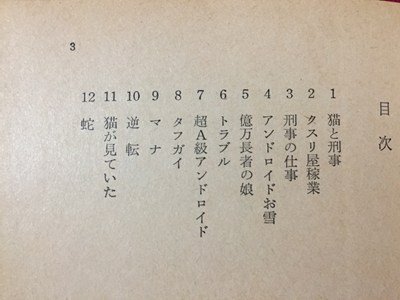 目次
1 猫と刑事
2 クスリ屋稼業
3 刑事の仕事
4 アンドロイドお雪
5 億万長者の娘
6 トラブル
7 超A級アンドロイド
8 タフガイ
9 マナ
10 逆転
11 猫が見ていた
12 蛇
3